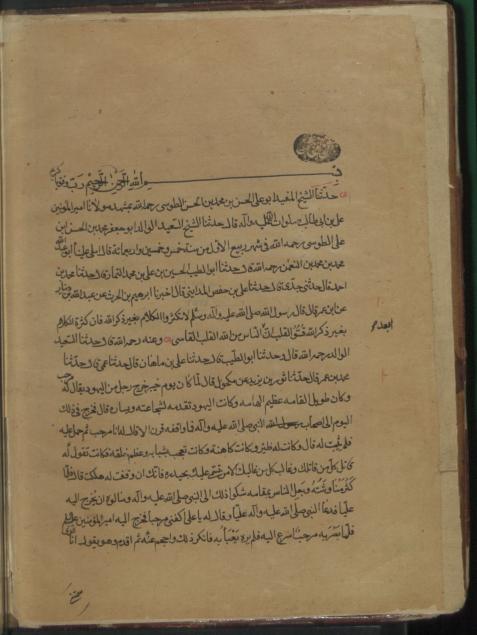 بسم الله الرحمن الرحيم رب وفقنا
حدثنا الشيخ المفيد ابو علي الحسن بن محمد بن الحسن الطوسي رحمه الله بمشهد مولانا امير المؤمنين
علي بن ابي طالب صلوات الله عليه وآله قال حدثنا الشيخ السعيد الوالد ابو جعفر محمد بن الحسن بن
علي الطوسي رحمه الله في شهر ربيع الاول من سنة خمس وخمسين واربعمائة قال املى علينا ابو عبد الله
محمد بن محمد بن النعمن رحمه الله قال حدثنا ابو الطيب الحسين بن علي بن محمد التمار قال حدثنا محمد بن
احمد قال حدثني جدي قال حدثنا علي بن حفص المدايني قال اخبرنا ابرهيم بن الحرث عن عبد الله بن دينار
عن ابن عمر قال قال رسول الله صلى الله عليه وآله وسلم لا تكثروا الكلام بغير ذكر الله فان كثرة الكلام
بغير ذكر الله قسو القلب ان ابعد الناس من الله القلب القاسي وعنه رحمه الله قال حدثنا السعيد
الوالد رحمه الله قال حدثنا ابو الطيب قال حدثنا علي بن ماهان قال حدثنا عمي قال حدثنا
محمد بن عمر قال حدثنا ثور بن يزيد عن مكحول قال لما كان يوم خيبر خرج رجل من اليهود يقال له مرحب
وكان طويل القامه عظيم الهامه وكانت اليهود تقدمه لشجاعته ويساره قال فخرج في ذلك
اليوم الى اصحاب رسول الله النبي صلى الله عليه وآله فما واقفه قرن الا قال له انا مرحب ثم حمل عليه
فلم يثبت له قال وكانت له ظئر وكانت كاهنة وكانت تعجب بشبابه وعظم خلقه فكانت تقول له
قاتل كل من قاتلك وغالب كل من غالبك الا من تسمى عليك بحيدرة فانك ان وقفت له هلكت قال فلما
كثر مناوشته وجعل الناس بمقامه شكوا ذلك الى النبي صلى الله عليه وآله وسالوه ان يخرج اليه
عليا فدعا النبي صلى الله عليه وآله عليا وقال له يا علي اكفني مرحبا فخرج اليه امير المؤمنين عليه
فلما بصر به مرحبا اسرع اليه فلم يره يعبأ به فانكر ذلك واحجم عنه ثم اقدم وهو يقول انا